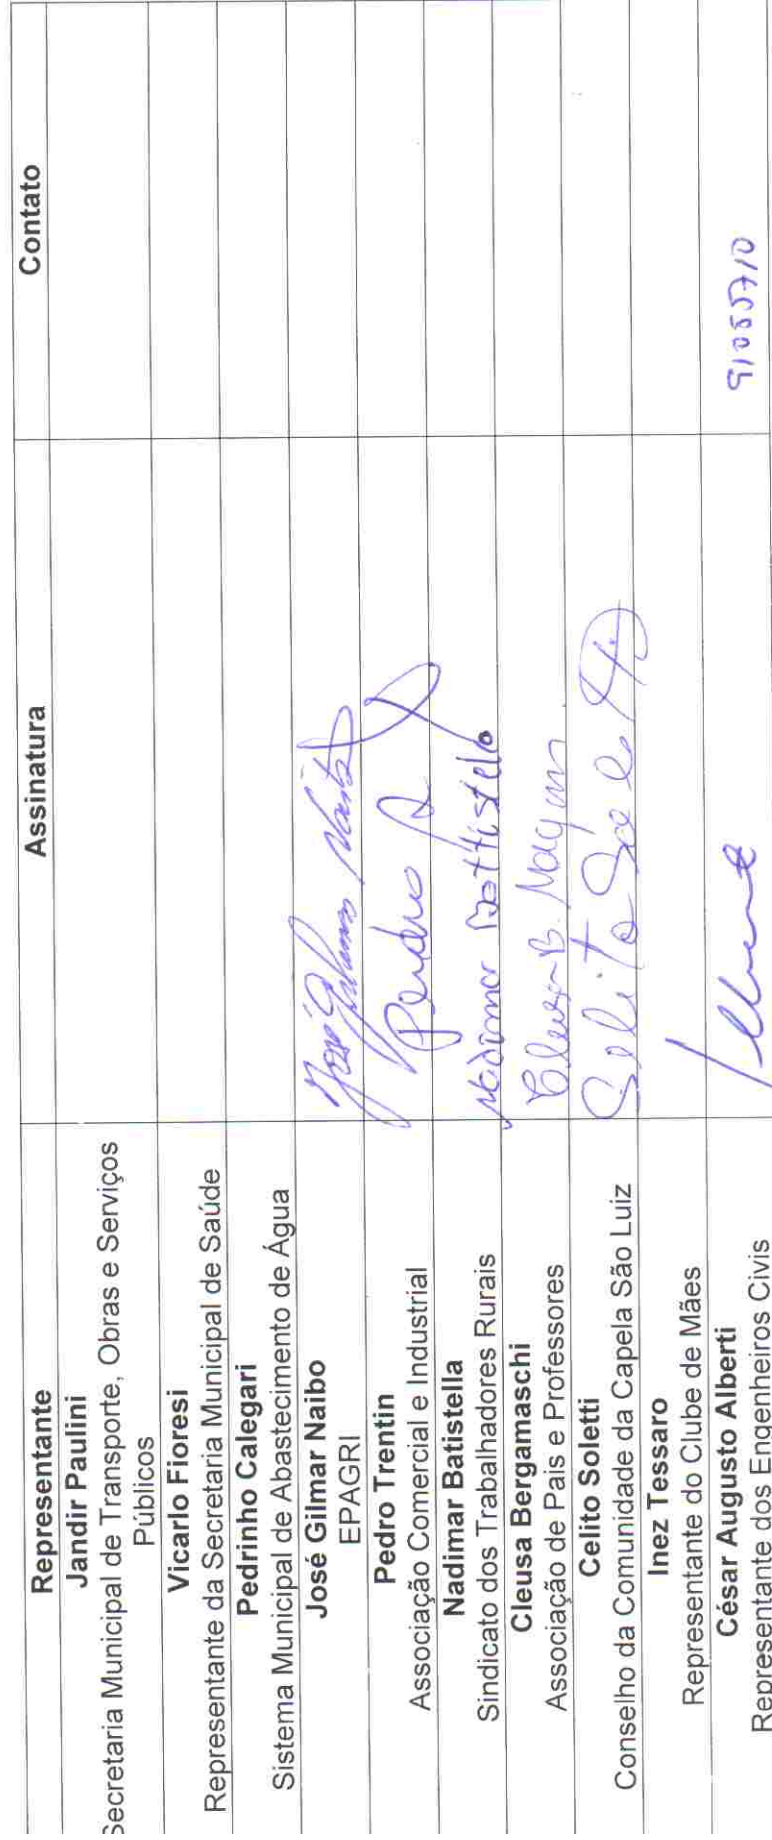 Representante Assinatura Contato
Jandir Paulini
Secretaria Municipal de Transporte, Obras e Serviços
Públicos
Vicarlo Fioresi
Representante da Secretaria Municipal de Saúde
Pedrinho Calegari
Sistema Municipal de Abastecimento de Água
José Gilmar Naibo
EPAGRI
José Gilmar Naibo
Pedro Trentin
Associação Comercial e Industrial
Pedro
Nadimar Batistella
Sindicato dos Trabalhadores Rurais
Nadimar Battistella
Cleusa Bergamaschi
Associação de Pais e Professores
Cleusa B.
Celito Soletti
Conselho da Comunidade da Capela São Luiz
Selito Soletti
Inez Tessaro
Representante do Clube de Mães
César Augusto Alberti
Representante dos Engenheiros Civis
91055710